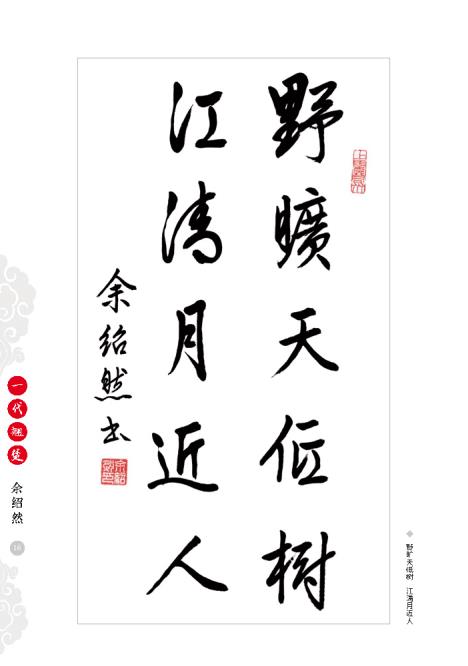 野曠天低树
江清月近人
余绍然书
一代翘楚
余绍然
野旷天低树 江清月近人